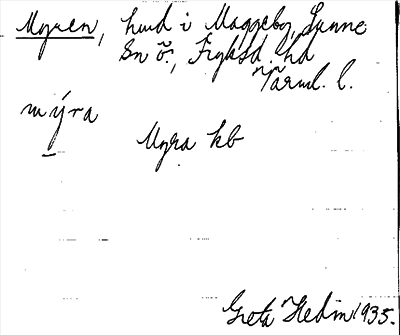 Myren, hmd i Maggebg, Sunne
sn ö., Fryksd. hd
Värml. l.
mýra
Myra kb
Greta Hedin 1935.